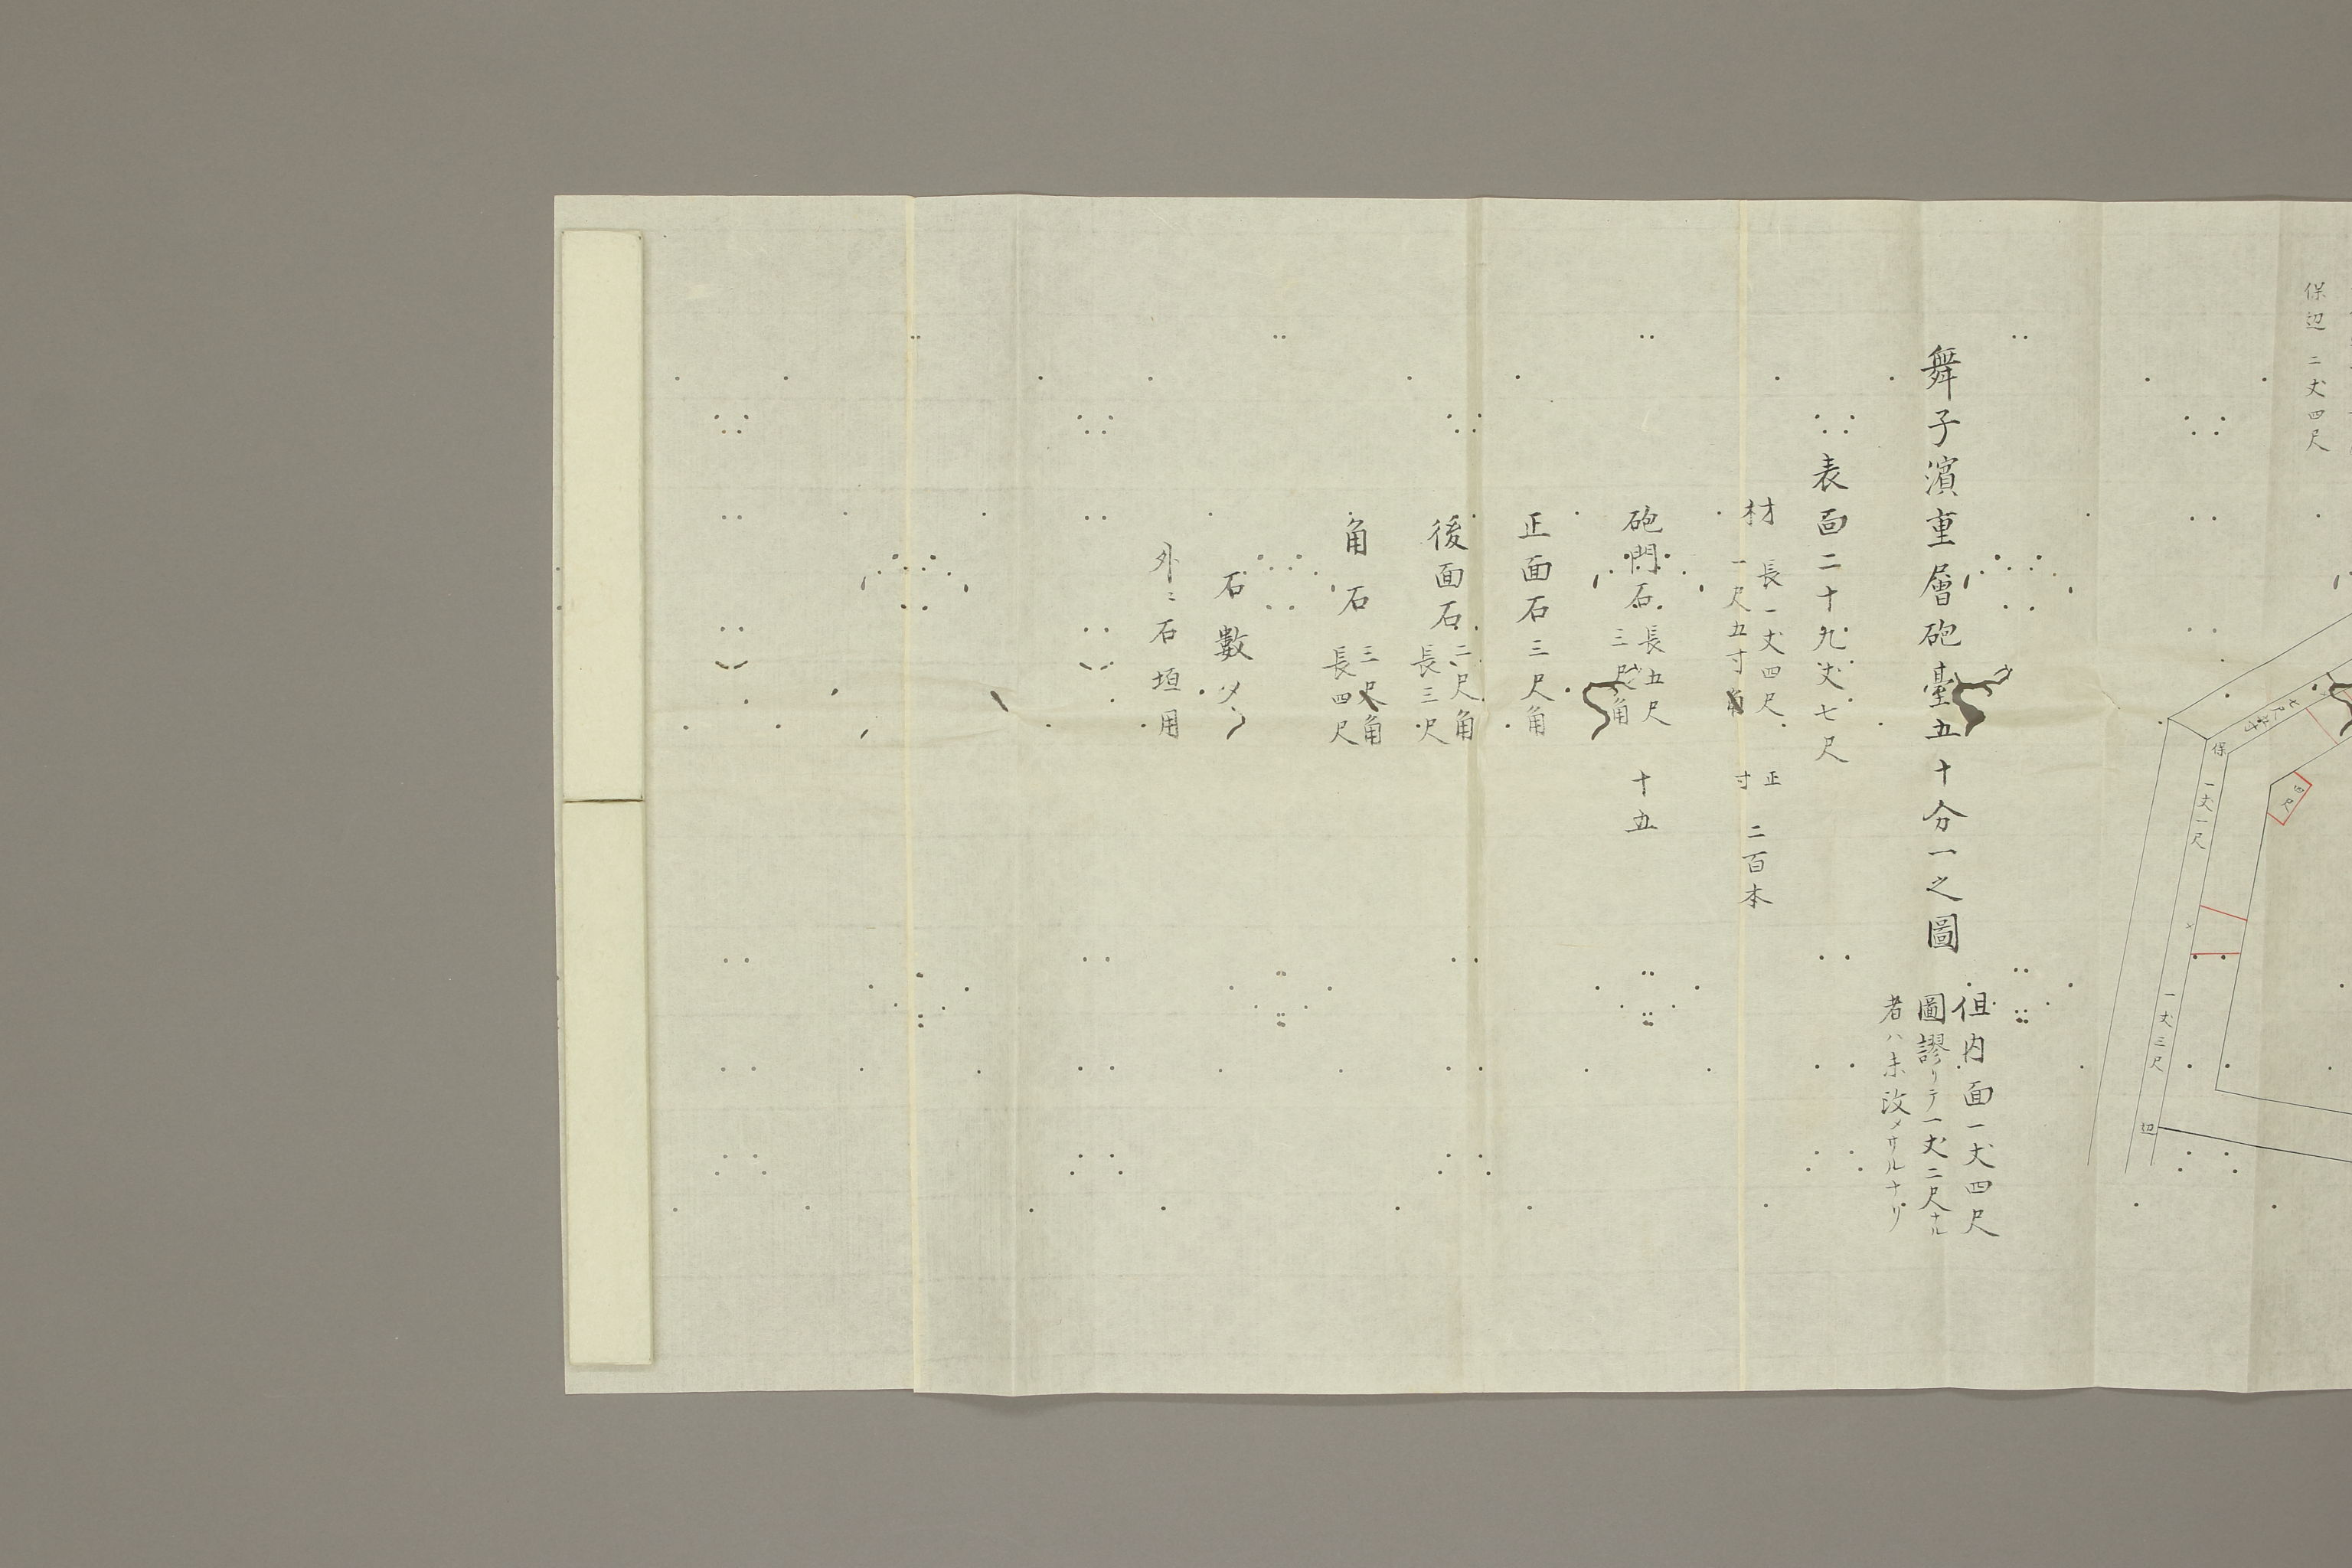 保辺 二丈四尺
七尺
保
四尺
一丈一尺
一丈三尺
辺
舞子濱重層砲臺五十分一之圖
但内面一丈四尺
圖謬リテ一丈二尺ナル
者ハ未改メサルナリ
表面二十九丈七尺
材 長一丈四尺 正
一尺五寸角 寸 二百本
砲門石 長五尺
三尺角 十五
正面石三尺角
後面石 二尺角
長三尺
角石 三尺角
長四尺
石數〆
外ニ石垣用